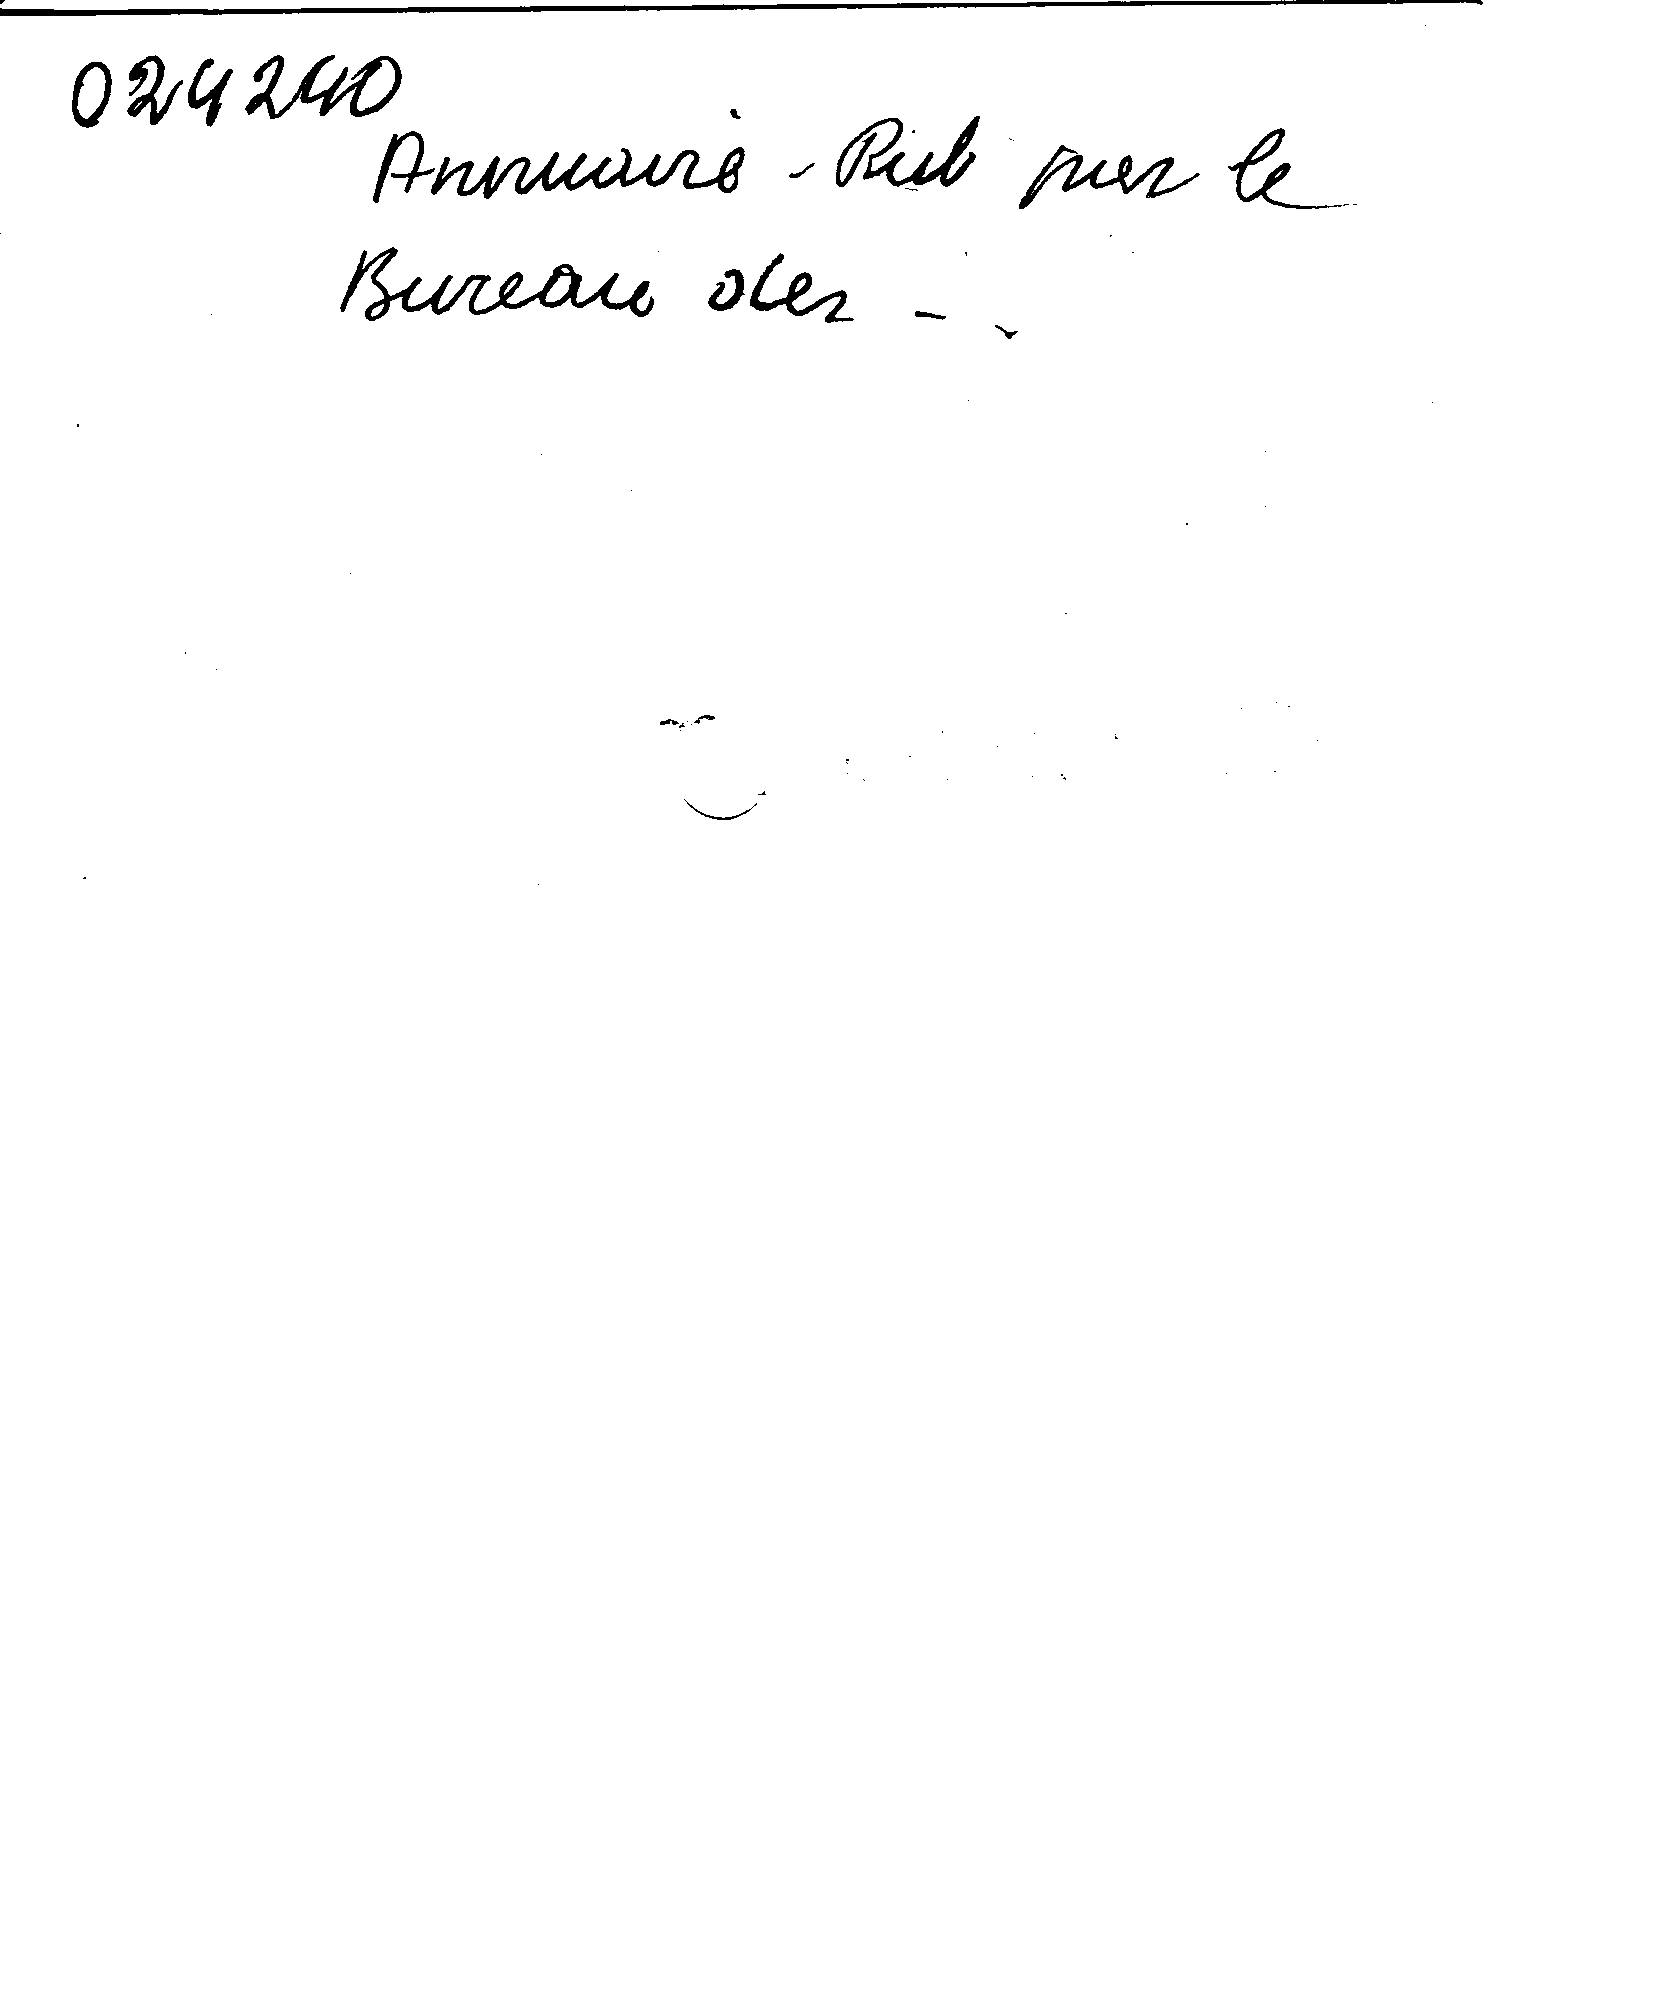 024240
Annuaire - Pub par le
Bureau des - .